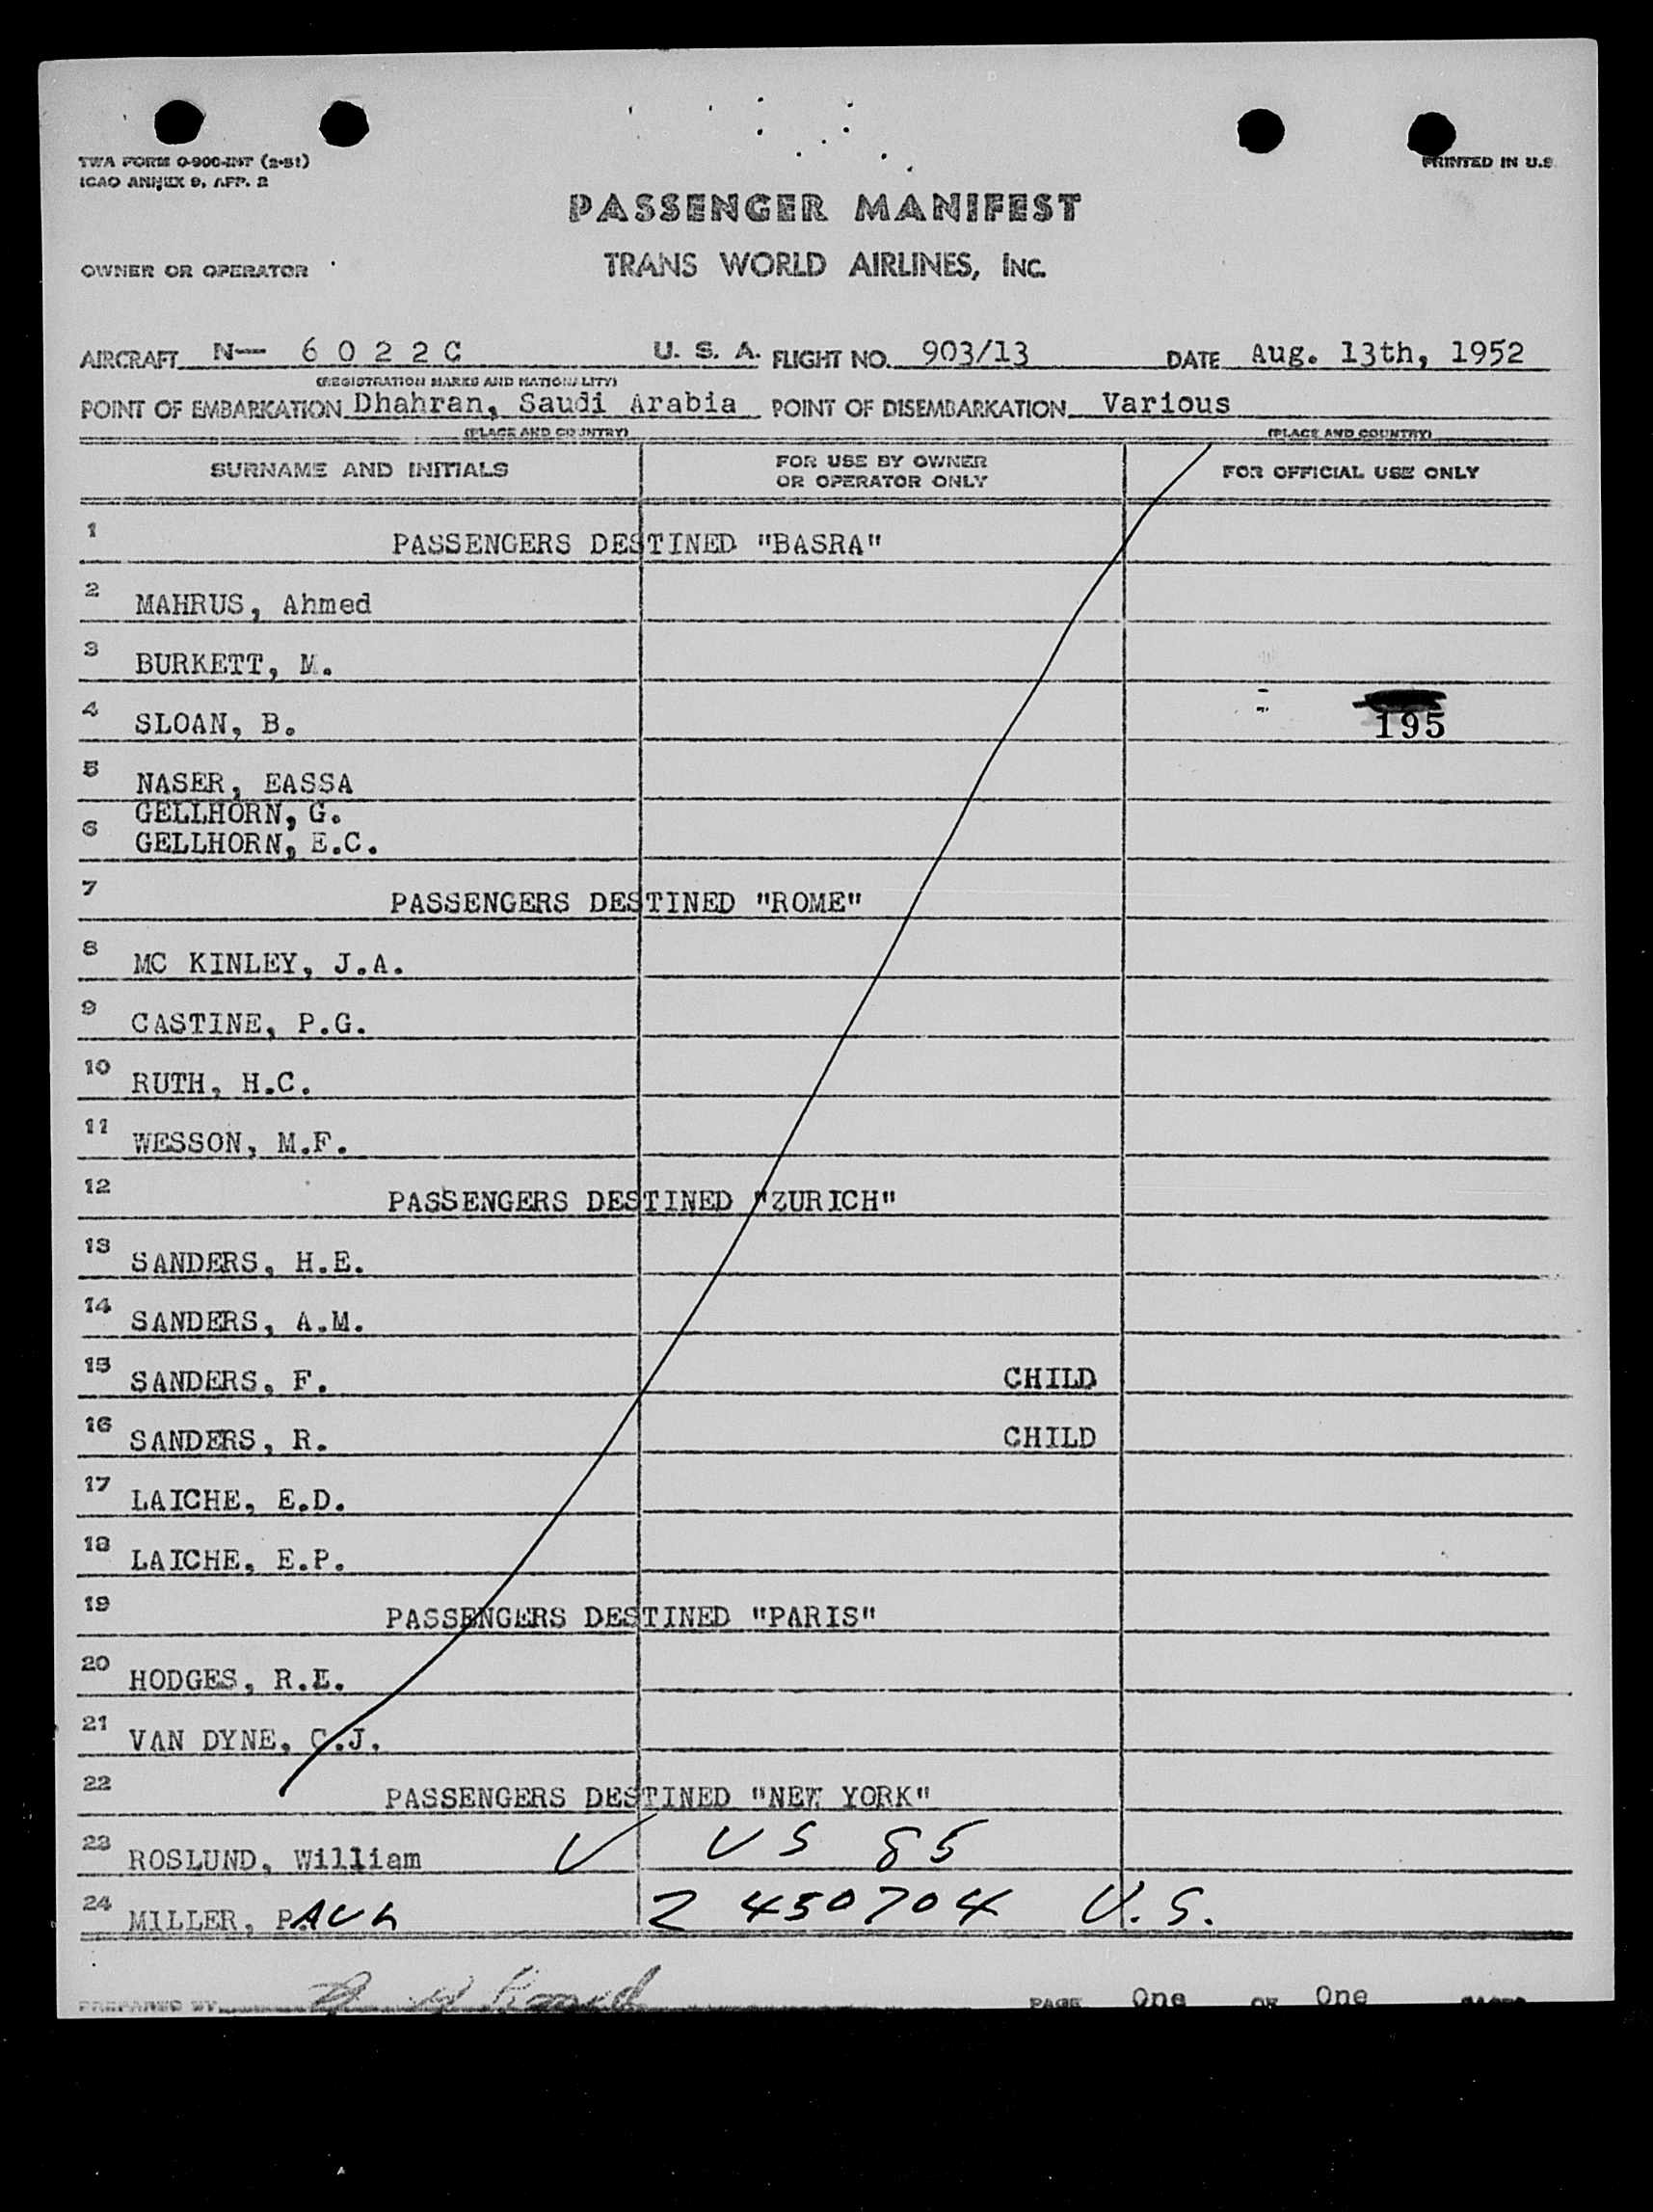 TWA FORM O-900-INT (2-51)
ICAO ANNEX 9, APP. 2
PRINTED IN U.S.
PASSENGER MANIFEST
OWNER OR OPERATOR TRANS WORLD AIRLINES, INC.
AIRCRAFT N— 6 0 2 2 C U. S. A. FLIGHT NO. 903/13 DATE Aug. 13th, 1952
(REGISTRATION MARKS AND NATIONALITY)
POINT OF EMBARKATION Dhahran, Saudi Arabia POINT OF DISEMBARKATION Various
(PLACE AND COUNTRY) (PLACE AND COUNTRY)
SURNAME AND INITIALS FOR USE BY OWNER OR OPERATOR ONLY FOR OFFICIAL USE ONLY
1 PASSENGERS DESTINED "BASRA"
2 MAHRUS, Ahmed
3 BURKETT, M.
4 SLOAN, B. 195
5 NASER, EASSA
GELLHORN, G.
6 GELLHORN, E.C.
7 PASSENGERS DESTINED "ROME"
8 MC KINLEY, J.A.
9 CASTINE, P.G.
10 RUTH, H.C.
11 WESSON, M.F.
12 PASSENGERS DESTINED "ZURICH"
13 SANDERS, H.E.
14 SANDERS, A.M.
15 SANDERS, F. CHILD
16 SANDERS, R. CHILD
17 LAICHE, E.D.
18 LAICHE, E.P.
19 PASSENGERS DESTINED "PARIS"
20 HODGES, R.E.
21 VAN DYNE, C.J.
22 PASSENGERS DESTINED "NEW YORK"
23 ROSLUND, William ✓ US 85
24 MILLER, PAUL 2 450704 U.S.
PREPARED BY PAGE One OF One PAGES